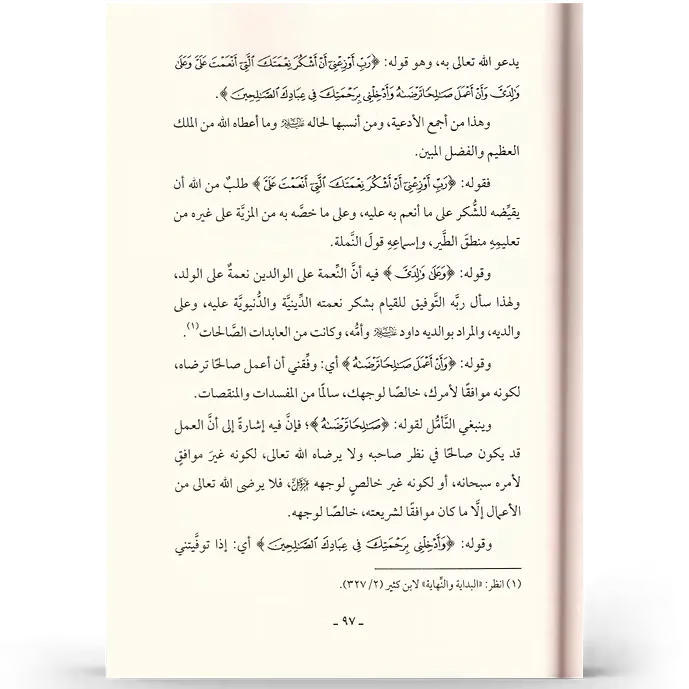 يدعو الله تعالى به، وهو قوله: ﴿رَبِّ أَوْزِعْنِيٓ أَنْ أَشْكُرَ نِعْمَتَكَ ٱلَّتِيٓ أَنْعَمْتَ عَلَىَّ وَعَلَىٰ
وَٰلِدَىَّ وَأَنْ أَعْمَلَ صَٰلِحًا تَرْضَىٰهُ وَأَدْخِلْنِي بِرَحْمَتِكَ فِي عِبَادِكَ ٱلصَّٰلِحِينَ﴾.
وهذا من أجمع الأدعية، ومن أنسبها لحاله ﷺ وما أعطاه الله من الملك
العظيم والفضل المبين.
فقوله: ﴿رَبِّ أَوْزِعْنِيٓ أَنْ أَشْكُرَ نِعْمَتَكَ ٱلَّتِيٓ أَنْعَمْتَ عَلَىَّ﴾ طلبٌ من الله أن
يقيِّضه للشُّكر على ما أنعم به عليه، وعلى ما خصَّه به من المزيَّة على غيره من
تعليمِهِ منطقَ الطَّير، وإسماعِهِ قولَ النَّملة.
وقوله: ﴿وَعَلَىٰ وَٰلِدَىَّ﴾ فيه أنَّ النِّعمة على الوالدين نعمةٌ على الولد،
ولهذا سأل ربَّه التَّوفيق للقيام بشكر نعمته الدِّينيَّة والدُّنيويَّة عليه، وعلى
والديه، والمراد بوالديه داود وأمُّه، وكانت من العابدات الصَّالحات(١).
وقوله: ﴿وَأَنْ أَعْمَلَ صَٰلِحًا تَرْضَىٰهُ﴾ أي: وفِّقني أن أعمل صالحًا ترضاه،
لكونه موافقًا لأمرك، خالصًا لوجهك، سالمًا من المفسدات والمنقصات.
وينبغي التَّأمُّل لقوله: ﴿صَٰلِحًا تَرْضَىٰهُ﴾؛ فإنَّ فيه إشارةً إلى أنَّ العمل
قد يكون صالحًا في نظر صاحبه ولا يرضاه الله تعالى، لكونه غيرَ موافقٍ
لأمره سبحانه، أو لكونه غير خالصٍ لوجهه ﷿، فلا يرضى الله تعالى من
الأعمال إلَّا ما كان موافقًا لشريعته، خالصًا لوجهه.
وقوله: ﴿وَأَدْخِلْنِي بِرَحْمَتِكَ فِي عِبَادِكَ ٱلصَّٰلِحِينَ﴾ أي: إذا توفَّيتني
(١) انظر: «البداية والنِّهاية» لابن كثير (٢/ ٣٢٧).
ـ ٩٧ ـ